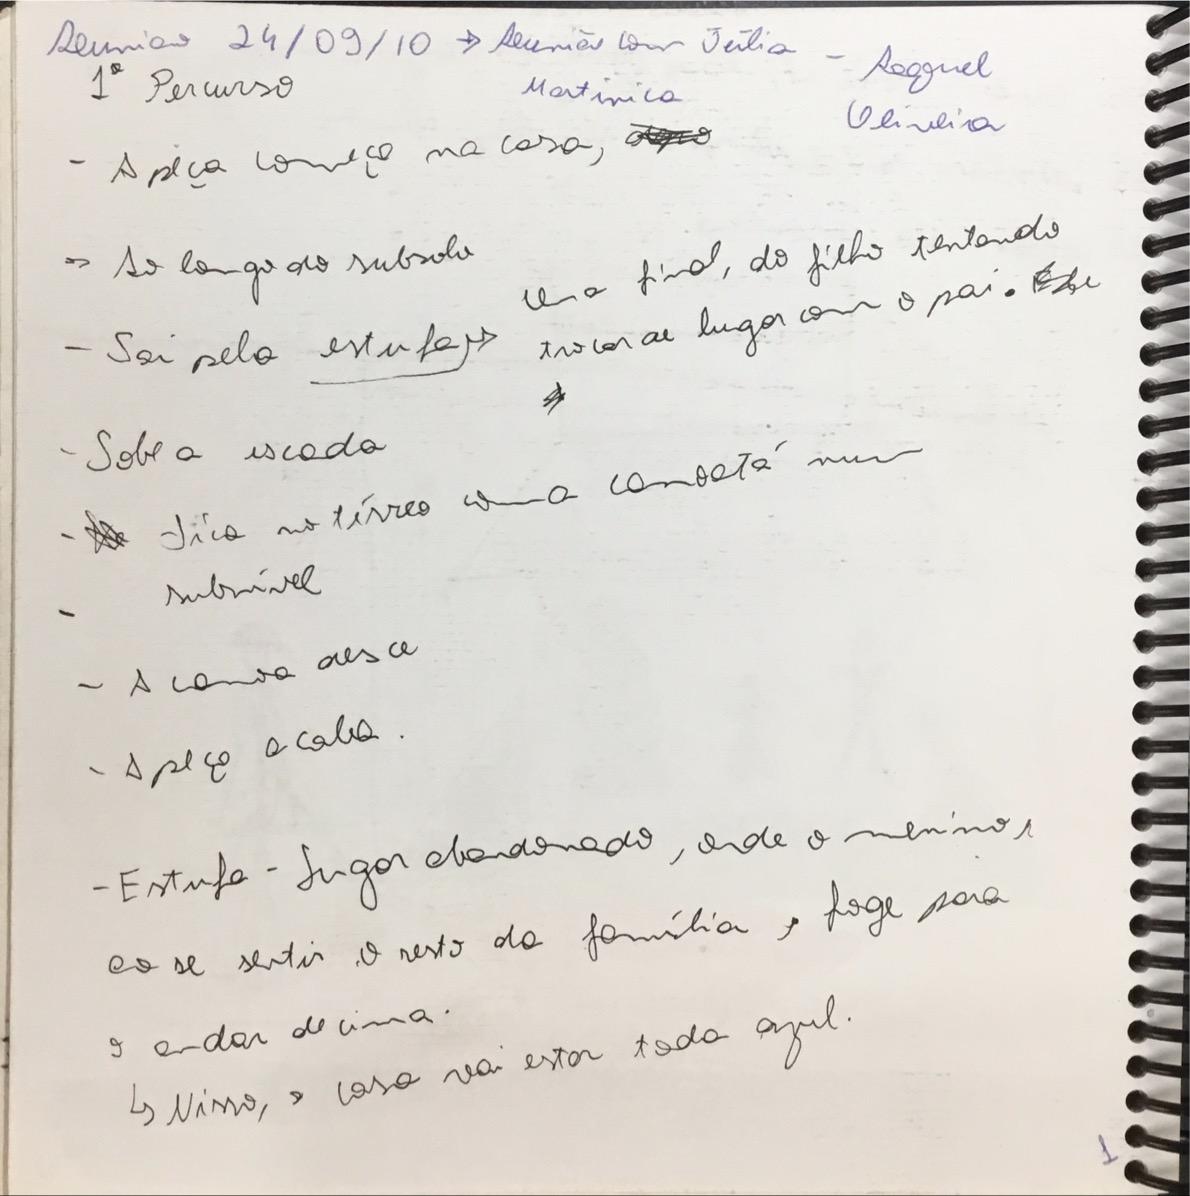 Reunião 24/09/10 → Reunião com Júlia - Raquel
1º Percurso Martinica Oliveira
- A peça começa na casa,
→ Ao longo do subsolo
- Sai pela estufa → Cena final, do filho tentando
trocar de lugar com o pai.
- Sobe a escada
- Fica no térreo com a cama num
subnível
-
- A cama desce
- A peça acaba.
- Estufa - Lugar abandonado, onde o menino,
ao se sentir o resto da família, foge para
o andar de cima.
↳ Nisso, a casa vai estar toda azul.
1